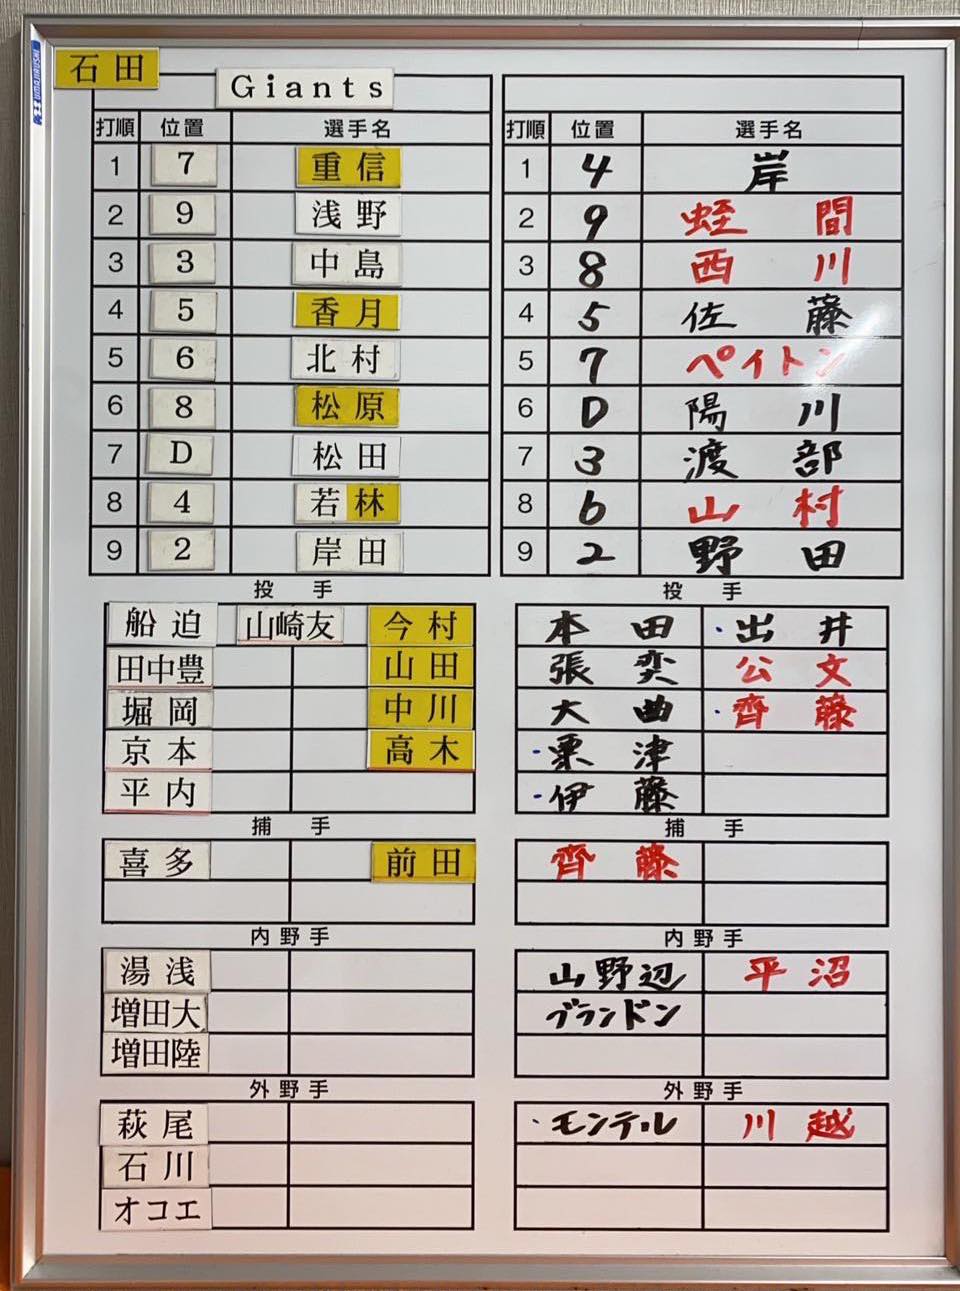 UMAJIRUSHI
石田
Giants
打順 位置 選手名
1 7 重信
2 9 浅野
3 3 中島
4 5 香月
5 6 北村
6 8 松原
7 D 松田
8 4 若林
9 2 岸田
投手
船迫 山崎友 今村
田中豊 山田
堀岡 中川
京本 高木
平内
捕手
喜多 前田
内野手
湯浅
増田大
増田陸
外野手
萩尾
石川
オコエ
打順 位置 選手名
1 4 岸
2 9 蛭間
3 8 西川
4 5 佐藤
5 7 ペイトン
6 D 陽川
7 3 渡部
8 6 山村
9 2 野田
投手
本田 ・出井
張奕 公文
大曲 ・齊藤
・粟津
・伊藤
捕手
齊藤
内野手
山野辺 平沼
ブランドン
外野手
・モンテル 川越